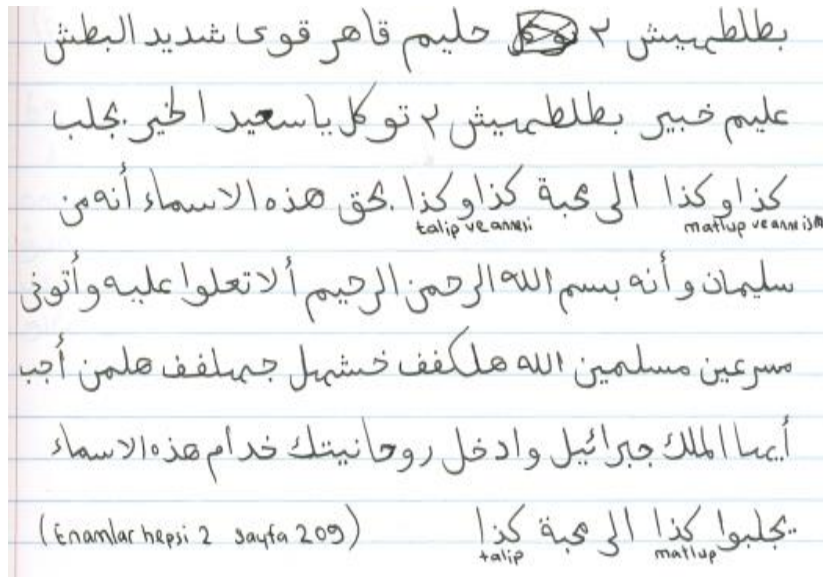 بطلطهيش ٢ حليم قاهر قوى شديد البطش
عليم خبير بطلطهيش ٢ توكل يا سعيد الخير بجلب
كذا وكذا الى محبة كذا وكذا بحق هذه الاسماء أنه من
matlup ve anne ism talip ve annesi
سليمان و أنه بسم الله الرحمن الرحيم ألا تعلوا عليه وأتونى
مسرعين مسلمين الله هلكفف خشهل جهلفف هلمن أجب
أيها الملك جبرائيل وادخل روحانيتك خدام هذه الاسماء
يجلبوا كذا الى محبة كذا (Enamlar hepsi 2 sayfa 209)
matlup talip